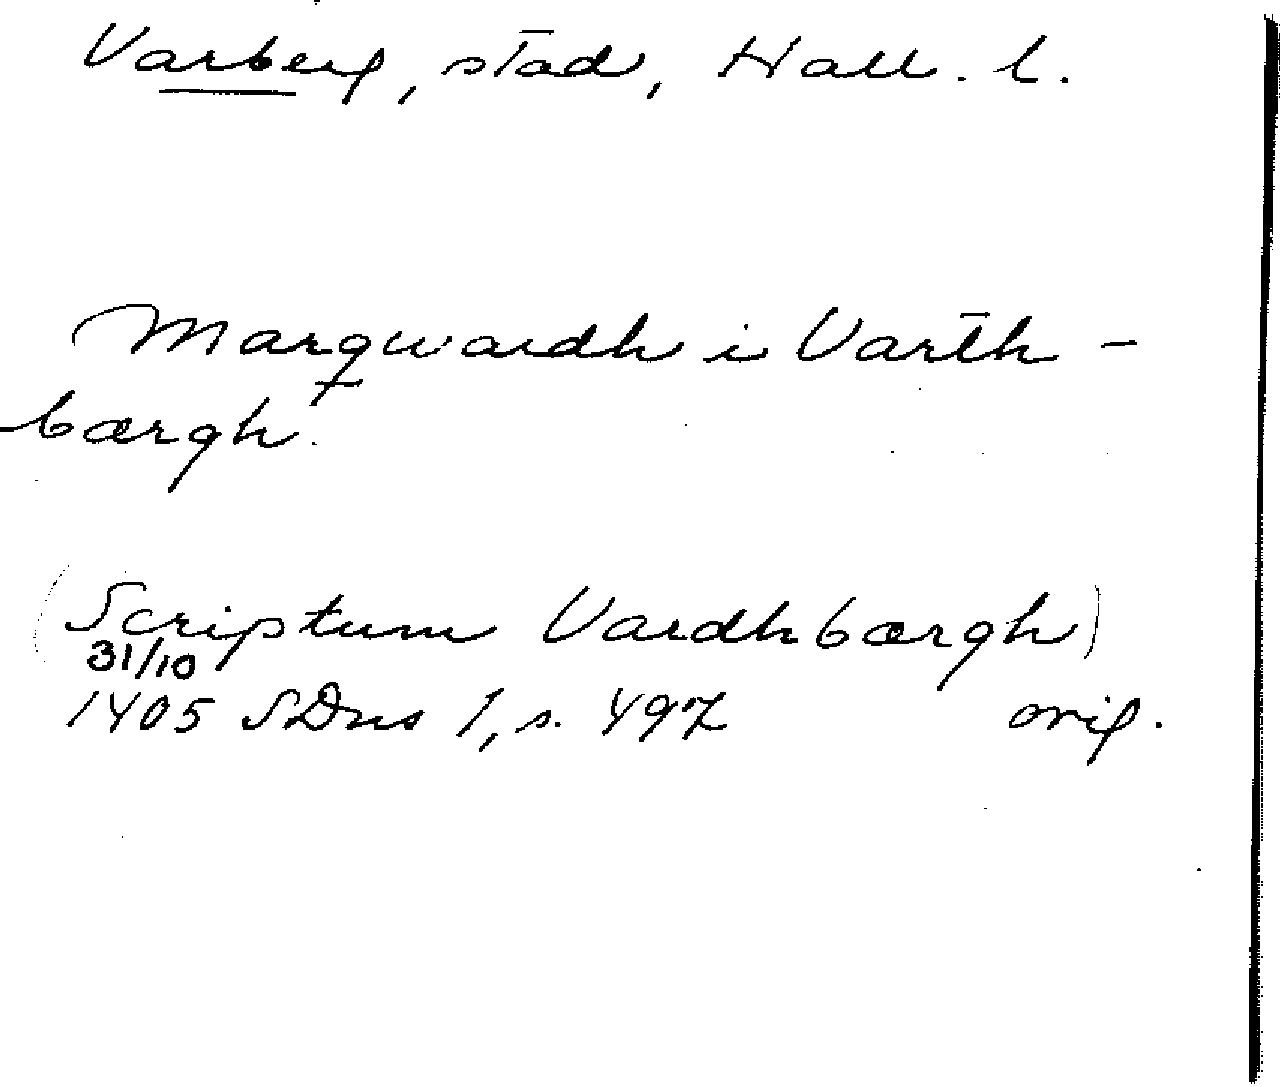 Varberg, stad, Hall. l.
Marqwardh i Varth-
bærgh.
(Scriptum Vardhbærgh)
31/10
1405 SDns 1, s. 497 orig.